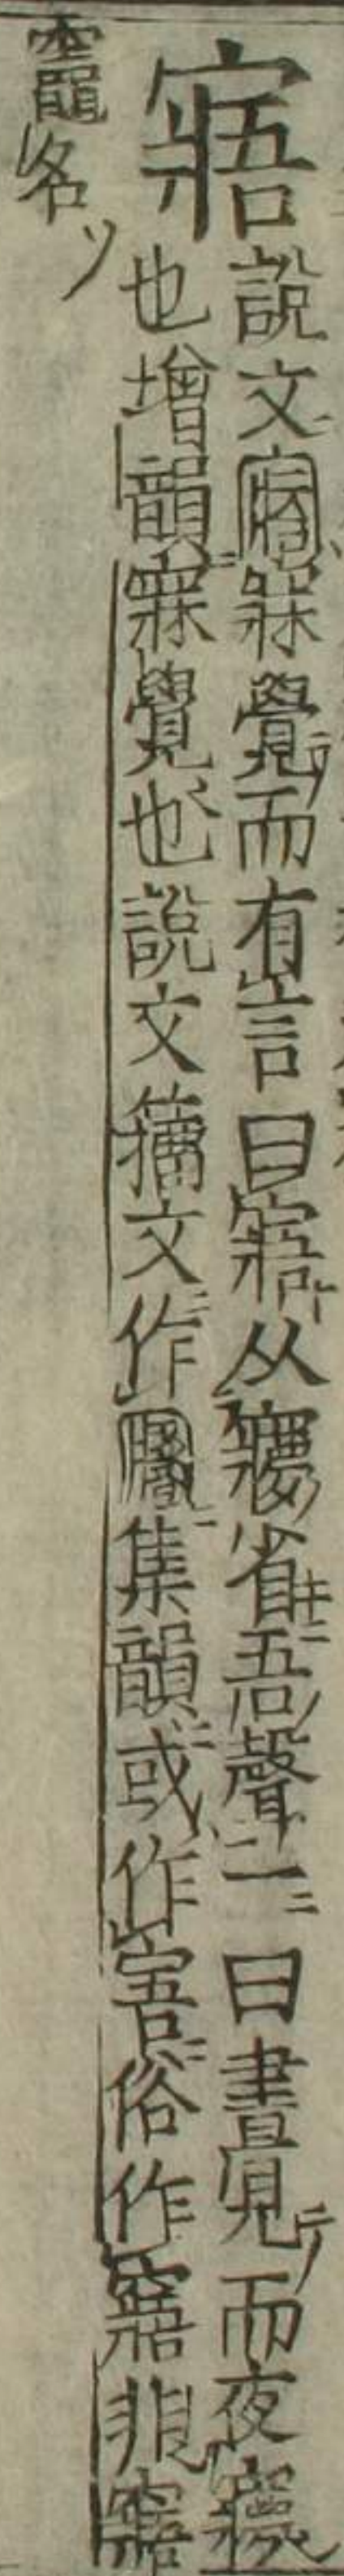 寤說文寤寐覺而有言曰寤从㝱省吾聲一曰晝見而夜㝱
也增韻寐覺也說文籀文作集韻或作俗作窹非窹
竈名